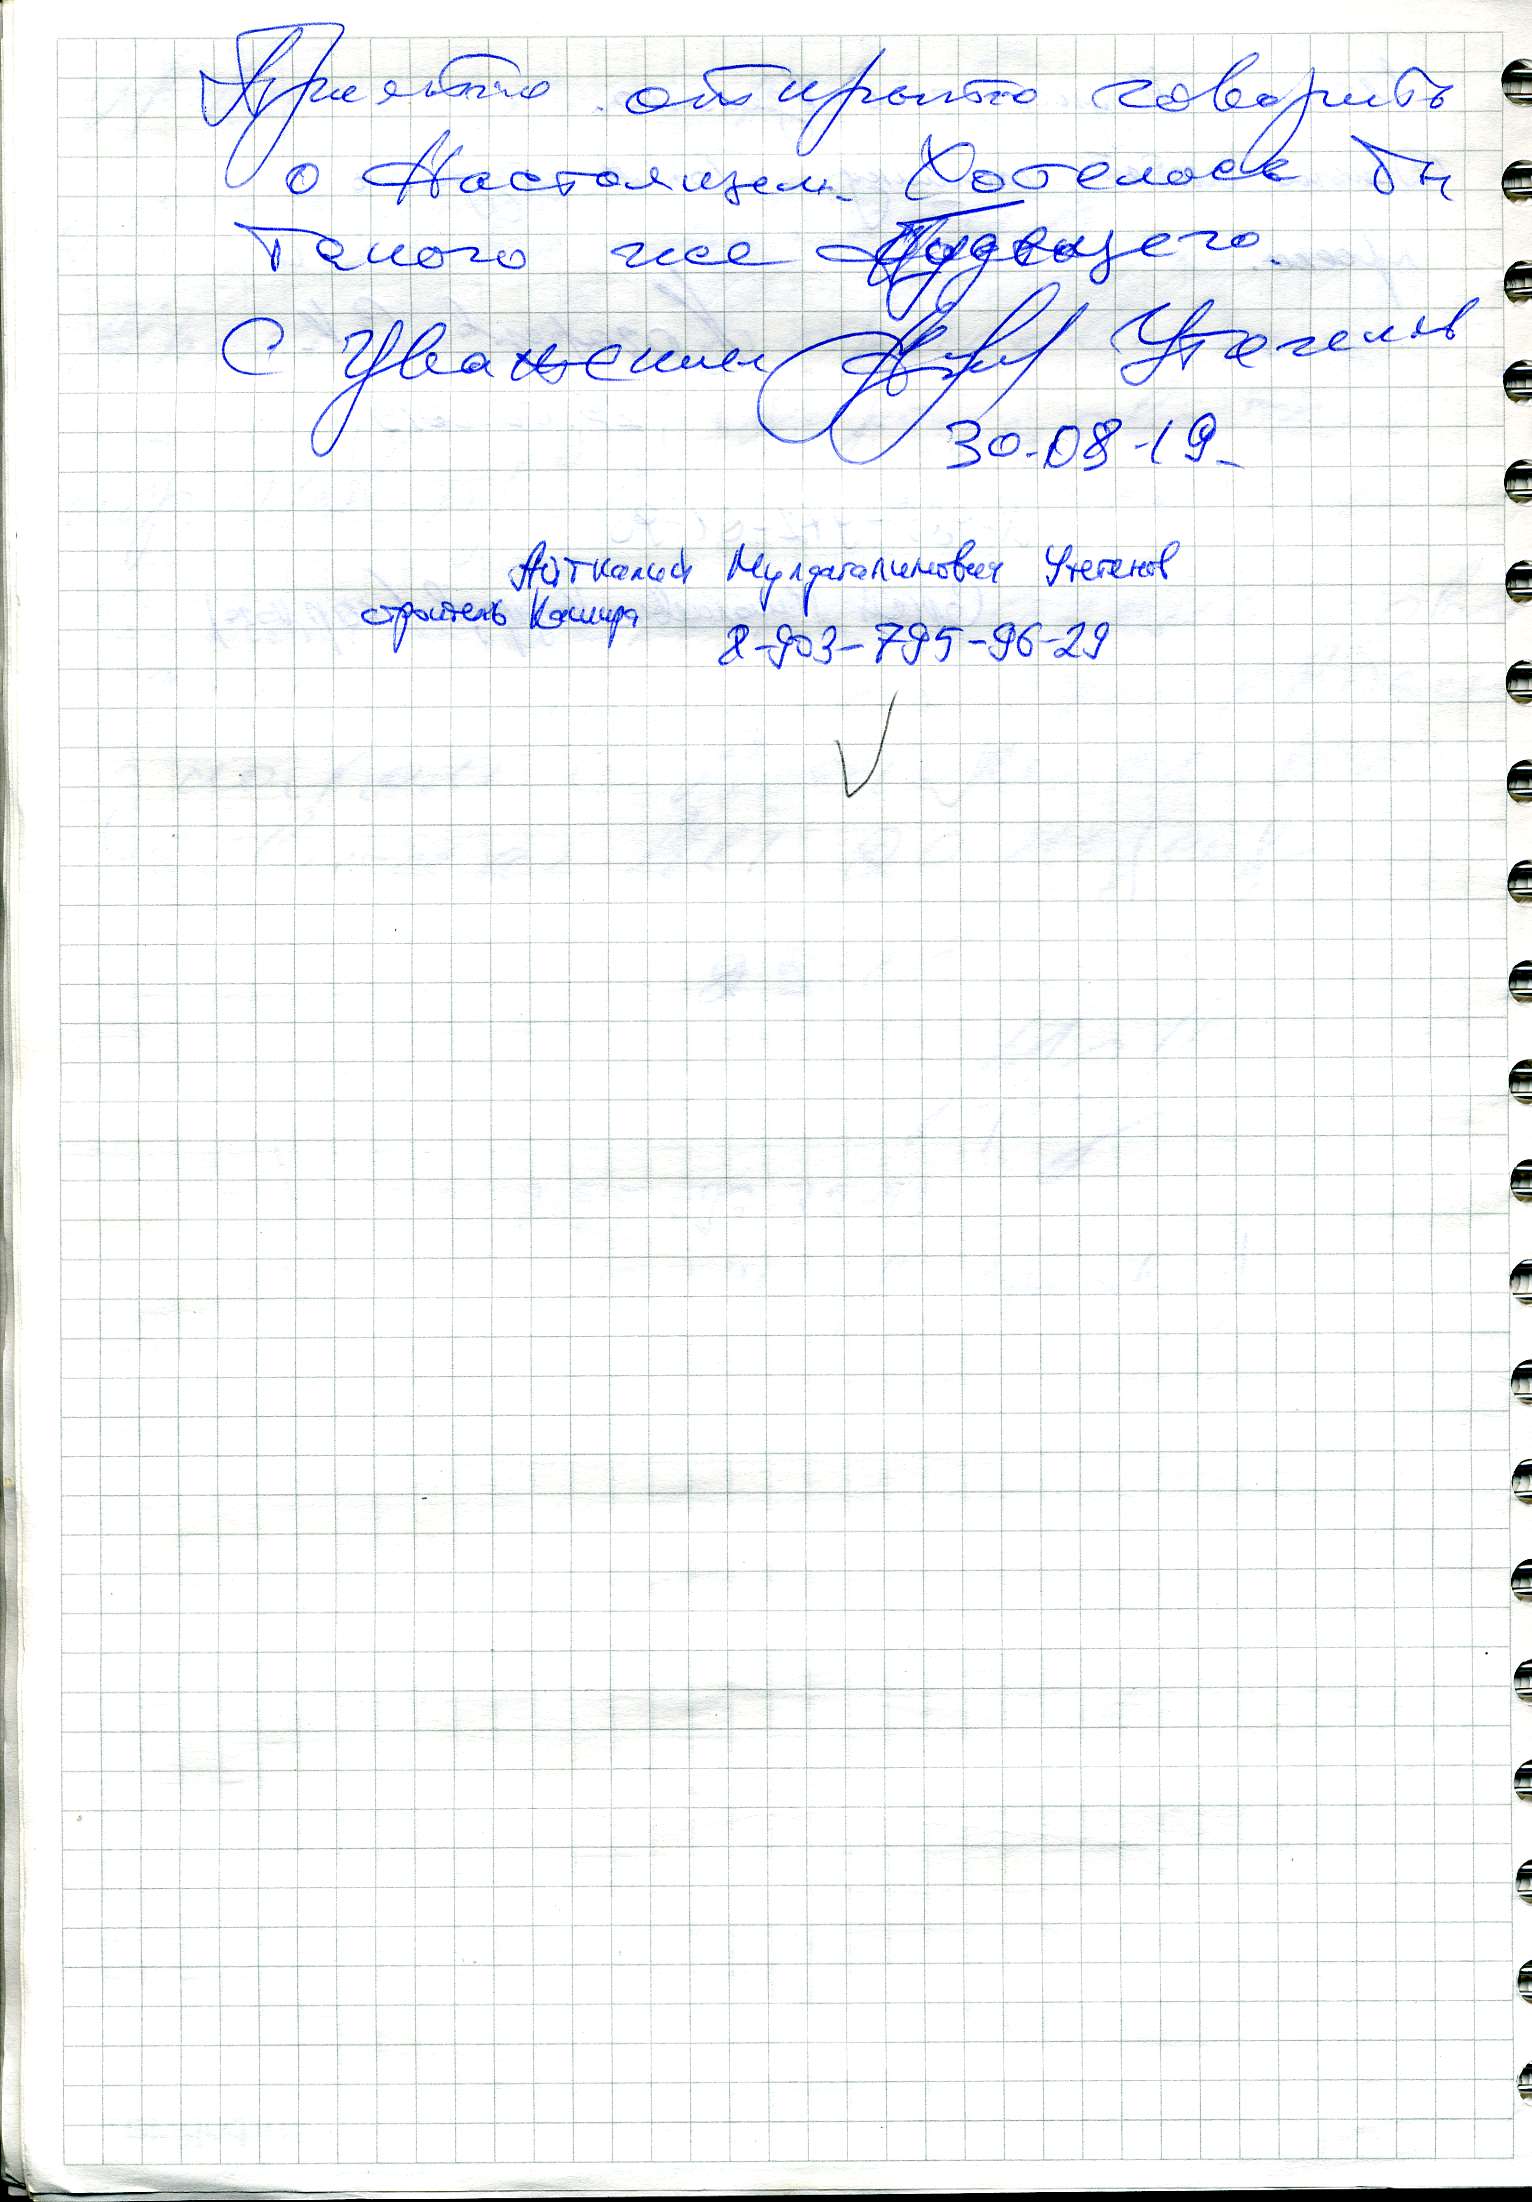 Приятно открыто говорить
о Настоящем. Хотелось бы
такого же Будущего.
С Уважением Утегенов
30-08-19-
Айткалий Мулдагалимович Утегенов
строитель Кашира
8-903-795-96-29